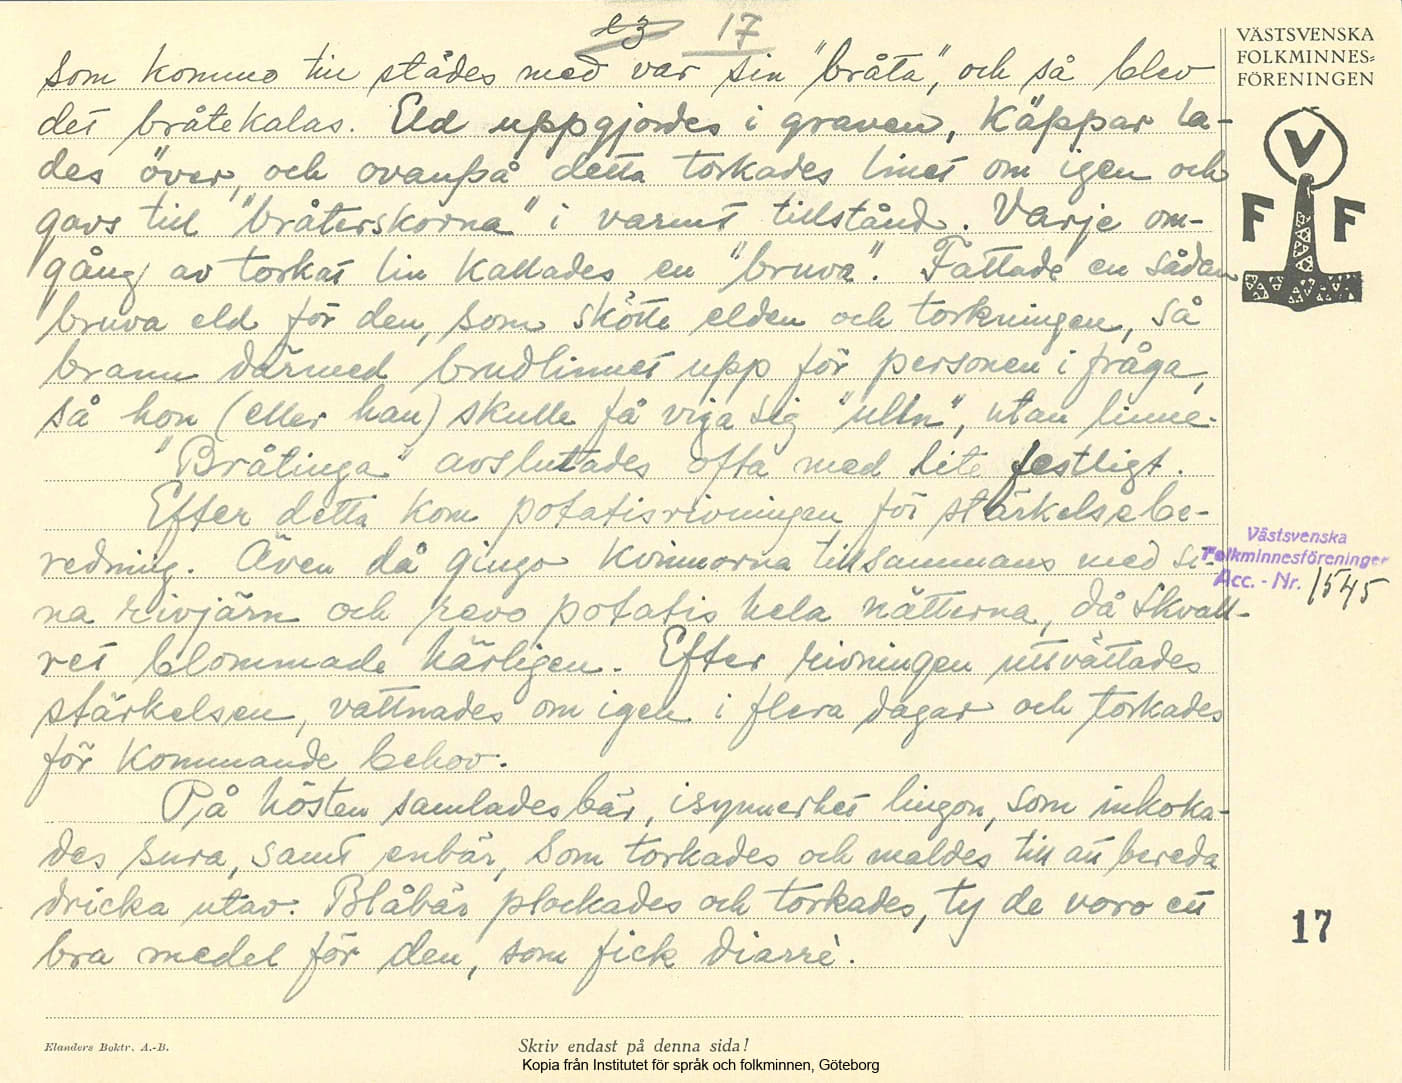 23 17
som kommo till städes med var sin "bråta", och så blev
det bråtekalas. Eld uppgjordes i graven, käppar la-
des över, och ovanpå detta torkades linet om igen och
gavs till "bråterskorna" i varmt tillstånd. Varje om-
gång av torkat lin kallades en "bruva". Fattade en sådan
bruva eld för den, som skötte elden och torkningen, så
brann därmed brudlinnet upp för personen i fråga,
så hon (eller han) skulle få viga sig "ulln", utan linne.
"Bråtinga" avslutades ofta med lite festligt.
Efter detta kom potatisrivningen för stärkelsebe-
redning. Även då gingo kvinnorna tillsammans med si-
na rivjärn och revo potatis hela nätterna, då skvall-
ret blommade härligen. Efter rivningen utsvättades
stärkelsen, vattnades om igen i flera dagar och torkades
för kommande behov.
På hösten samlades bär, isynnerhet lingon, som inkoka-
des sura, samt enbär, som torkades och maldes till att bereda
dricka utav. Blåbär plockades och torkades, ty de voro ett
bra medel för den, som fick diarré.
VÄSTSVENSKA
FOLKMINNES=
FÖRENINGEN
V
F F
Västsvenska
Folkminnesföreningen
Acc. - Nr. 1545
17
Elanders Boktr. A.-B.
Skriv endast på denna sida!
Kopia från Institutet för språk och folkminnen, Göteborg